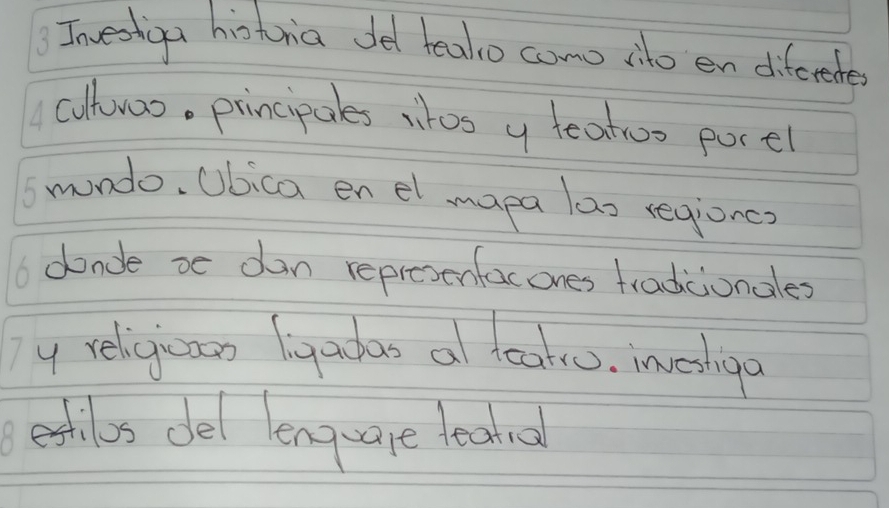 3 Investiga historia del teatro como rito en diferetes
4 culturas. principales ritos y teatros por el
5 mundo. Ubica en el mapa las regiones
6 donde se dan representacones tradicionales
7 y religiosas ligadas al teatro. investiga
8 estilos del lenguaje teatral